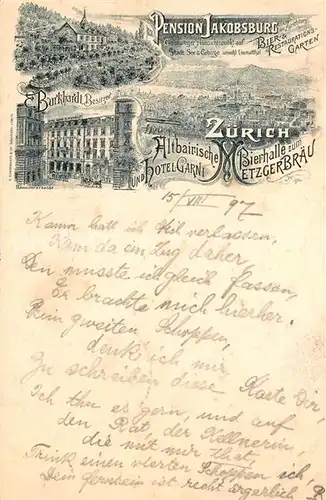 PENSION JAKOBSBURG
Stadt, See & Gebirge
BIER- &
RESTAURATIONS-
GARTEN
E. Burkhardt, Besitzer
ZÜRICH
Altbairische Bierhalle zum
UND HOTEL GARNI METZGERBRÄU
15/VIII 97
Kaum hatt ich Kiel verlassen,
Kam da ein Zug daher,
Den musste ich gleich fassen,
Er brachte mich hierher.
Beim zweiten Schoppen,
denk ich mir
Zu schreiben diese Karte Dir,
Ich thu es gern, und auf
den Rat, der Kellnerin,
die mit mir that,
Trink einen vierten Schoppen ich
Dein ist recht ärgerlich